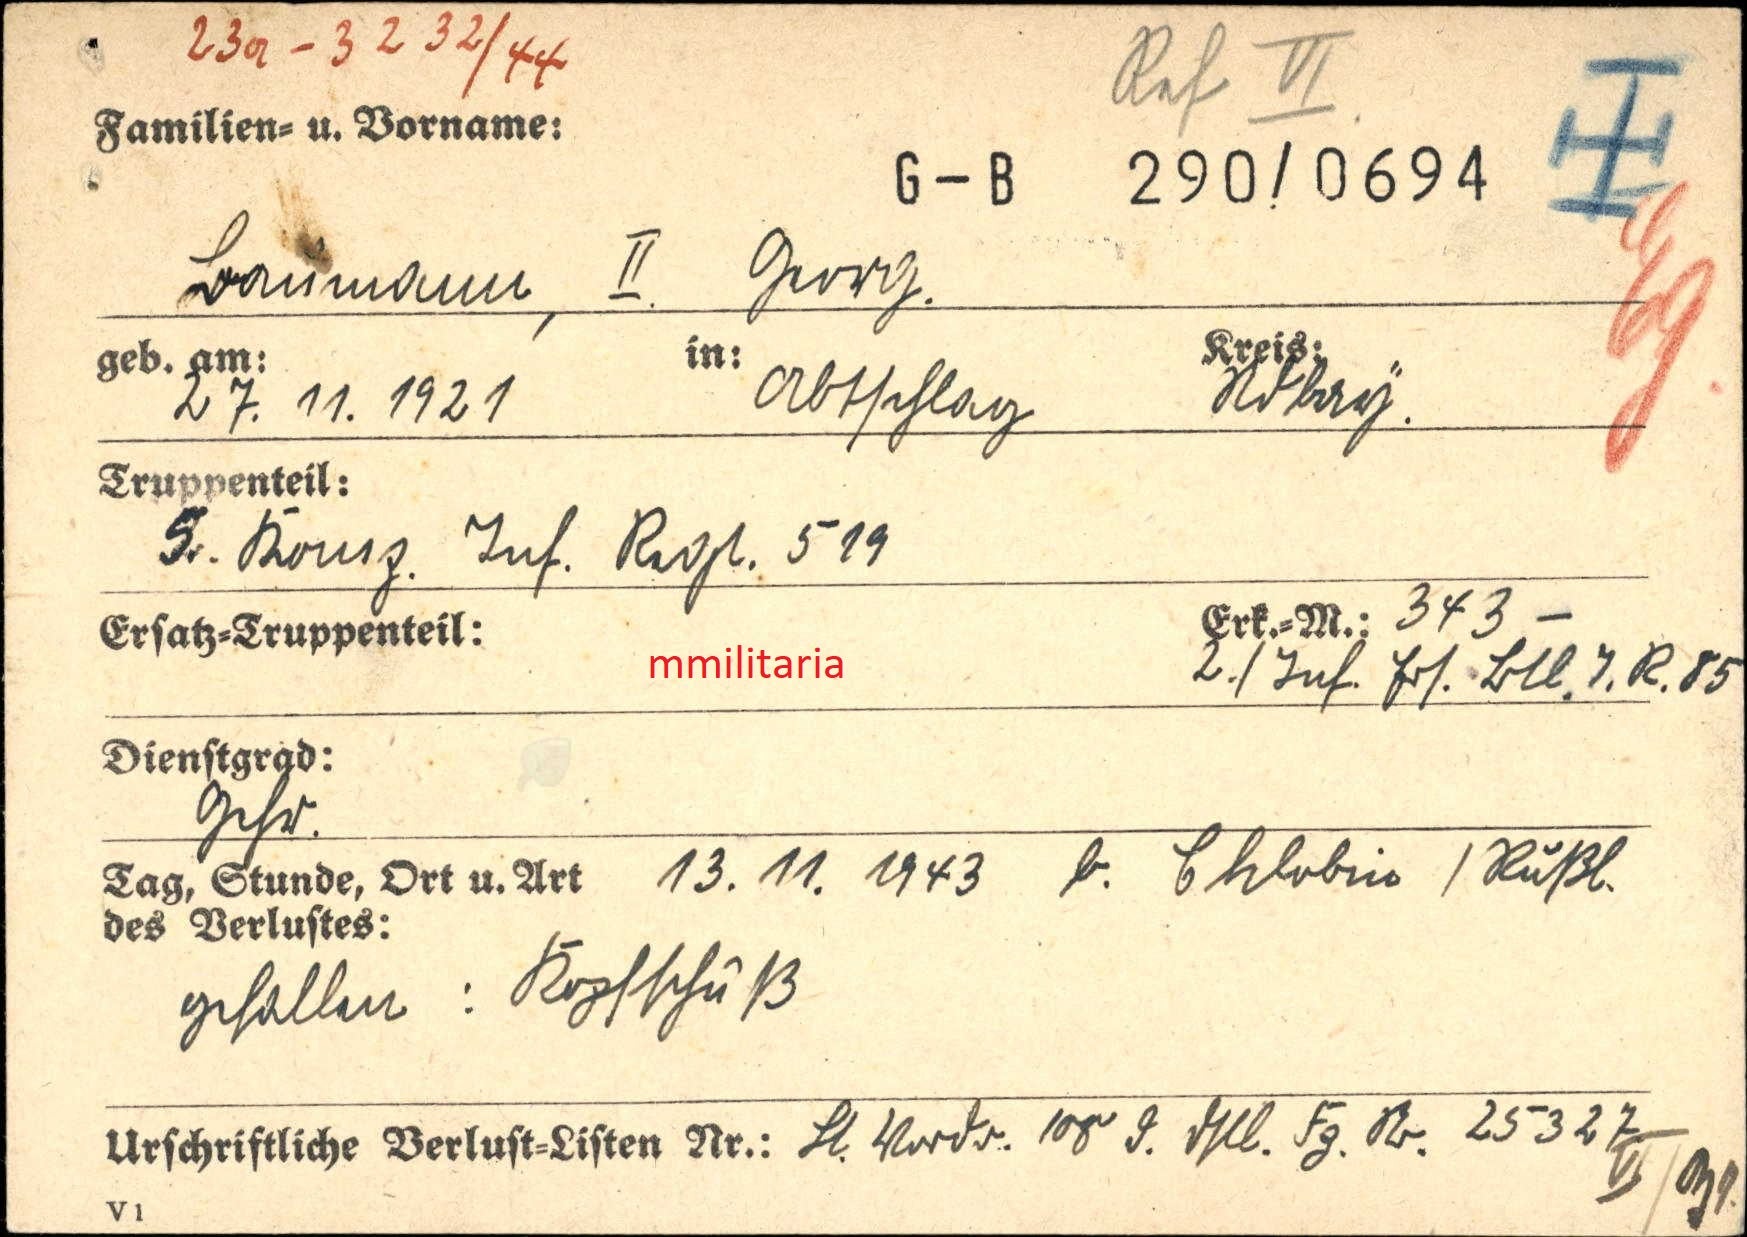 23a - 3232/44
Ref VI.
Familien- u. Vorname:
G-B 290/0694
Baumann, II. Georg.
geb. am: in: Kreis:
27. 11. 1921 Abtschlag Ndbay.
Truppenteil:
5. Komp. Inf. Regt. 519
Ersatz-Truppenteil: Erk.-M.: 343 -
mmilitaria
2./ Inf. Ers. Btl. I. R. 85
Dienstgrad:
Gefr.
Tag, Stunde, Ort u. Art 13. 11. 1943 b. Chlobin / Rußl.
des Verlustes:
gefallen : Kopfschuß
Urschriftliche Verlust-Listen Nr.: 108 Fg. Nr. 25327
VI
V 1